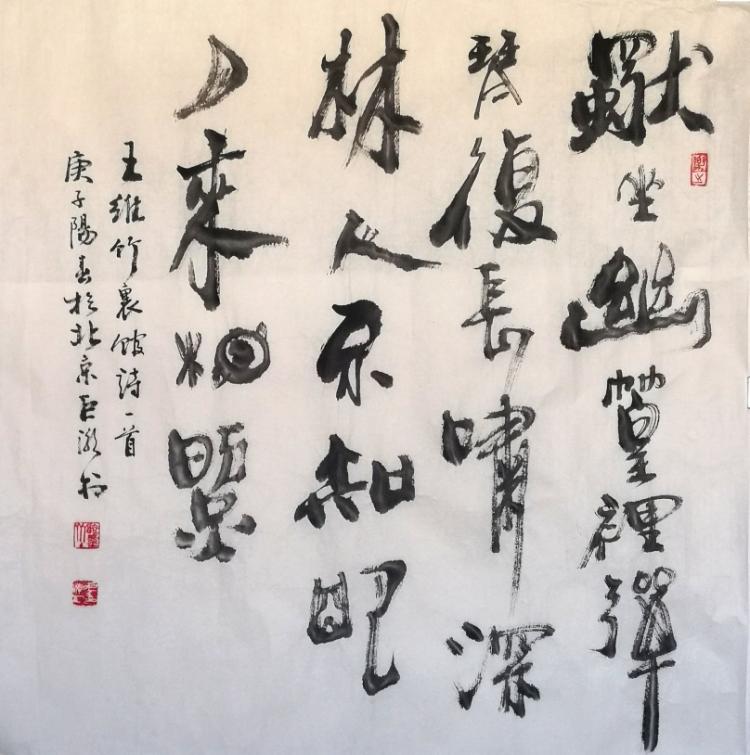 獨坐幽篁裡彈
琴復長嘯深
林人不知明
月來相照
王維竹裏館詩一首
庚子陽春於北京